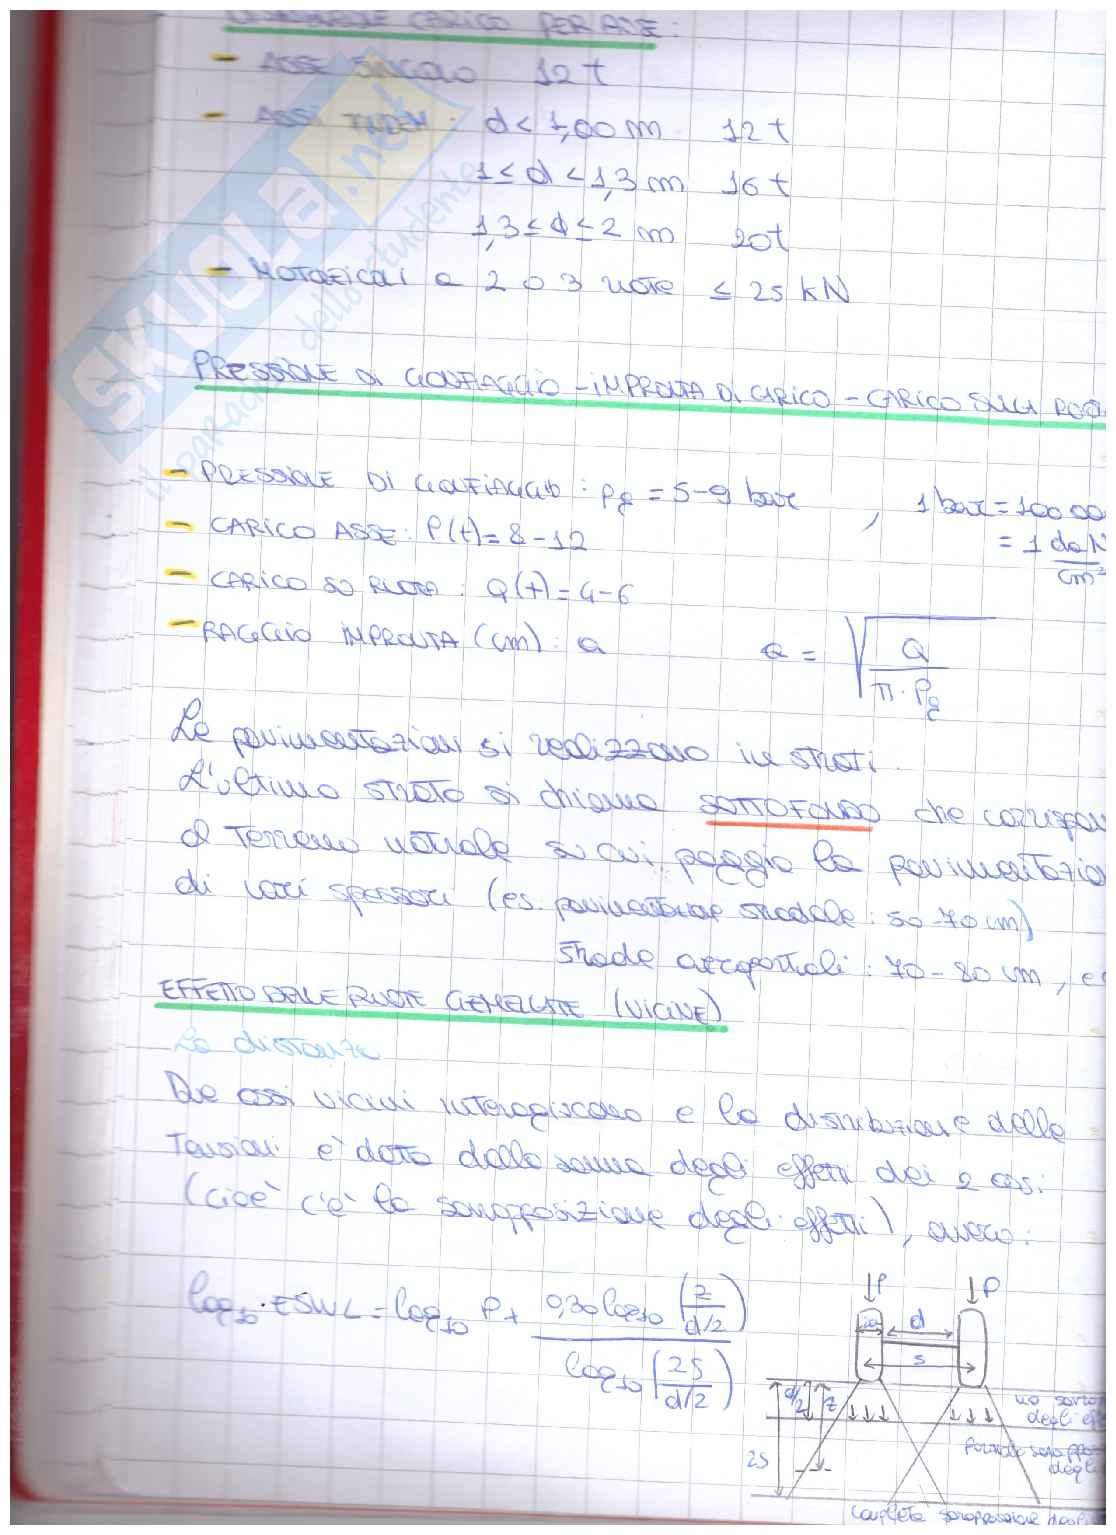 CARICO PER ASSE:
- ASSE SINGOLO 12 t
- ASSI TANDEM: d < 1,00 m 12 t
1 ≤ d < 1,3 m 16 t
1,3 ≤ d ≤ 2 m 20t
- MOTOVEICOLI a 2 o 3 ruote ≤ 25 kN
PRESSIONE DI GONFIAGGIO - IMPRONTA DI CARICO - CARICO SULLA
- PRESSIONE DI GONFIAGGIO: Pg = 5-9 bar , 1 bar = 100 00
- CARICO ASSE: P(t) = 8-12 = 1 daN/cm²
- CARICO SU RUOTA: Q(t) = 4-6
- RAGGIO IMPRONTA (cm): a a = √(Q/(π·Pg))
Le pavimentazioni si realizzano in strati.
L'ultimo strato si chiama SOTTOFONDO che corrispon
al terreno naturale su cui poggia la pavimentazio
di vari spessori (es. pavimentazione stradale: 50-70 cm)
strade aeroportuali: 70-80 cm,
EFFETTO DELLE RUOTE GEMELLATE (VICINE)
La distanza
Due assi vicini interagiscono e la distribuzione delle
tensioni è data dalla somma degli effetti dei 2 assi
(cioè c'è la sovrapposizione degli effetti), ovvero:
log10 · ESWL = log10 P + 0,30 log10 (z/(d/2)) / log10 (2S/(d/2))
P P
2a d
s
d/2 z
no sovra
degli eff
parziale sovrappos
degli
2S
completa sovrapposizione degli
SKUOLA.net
il paradiso dello studente